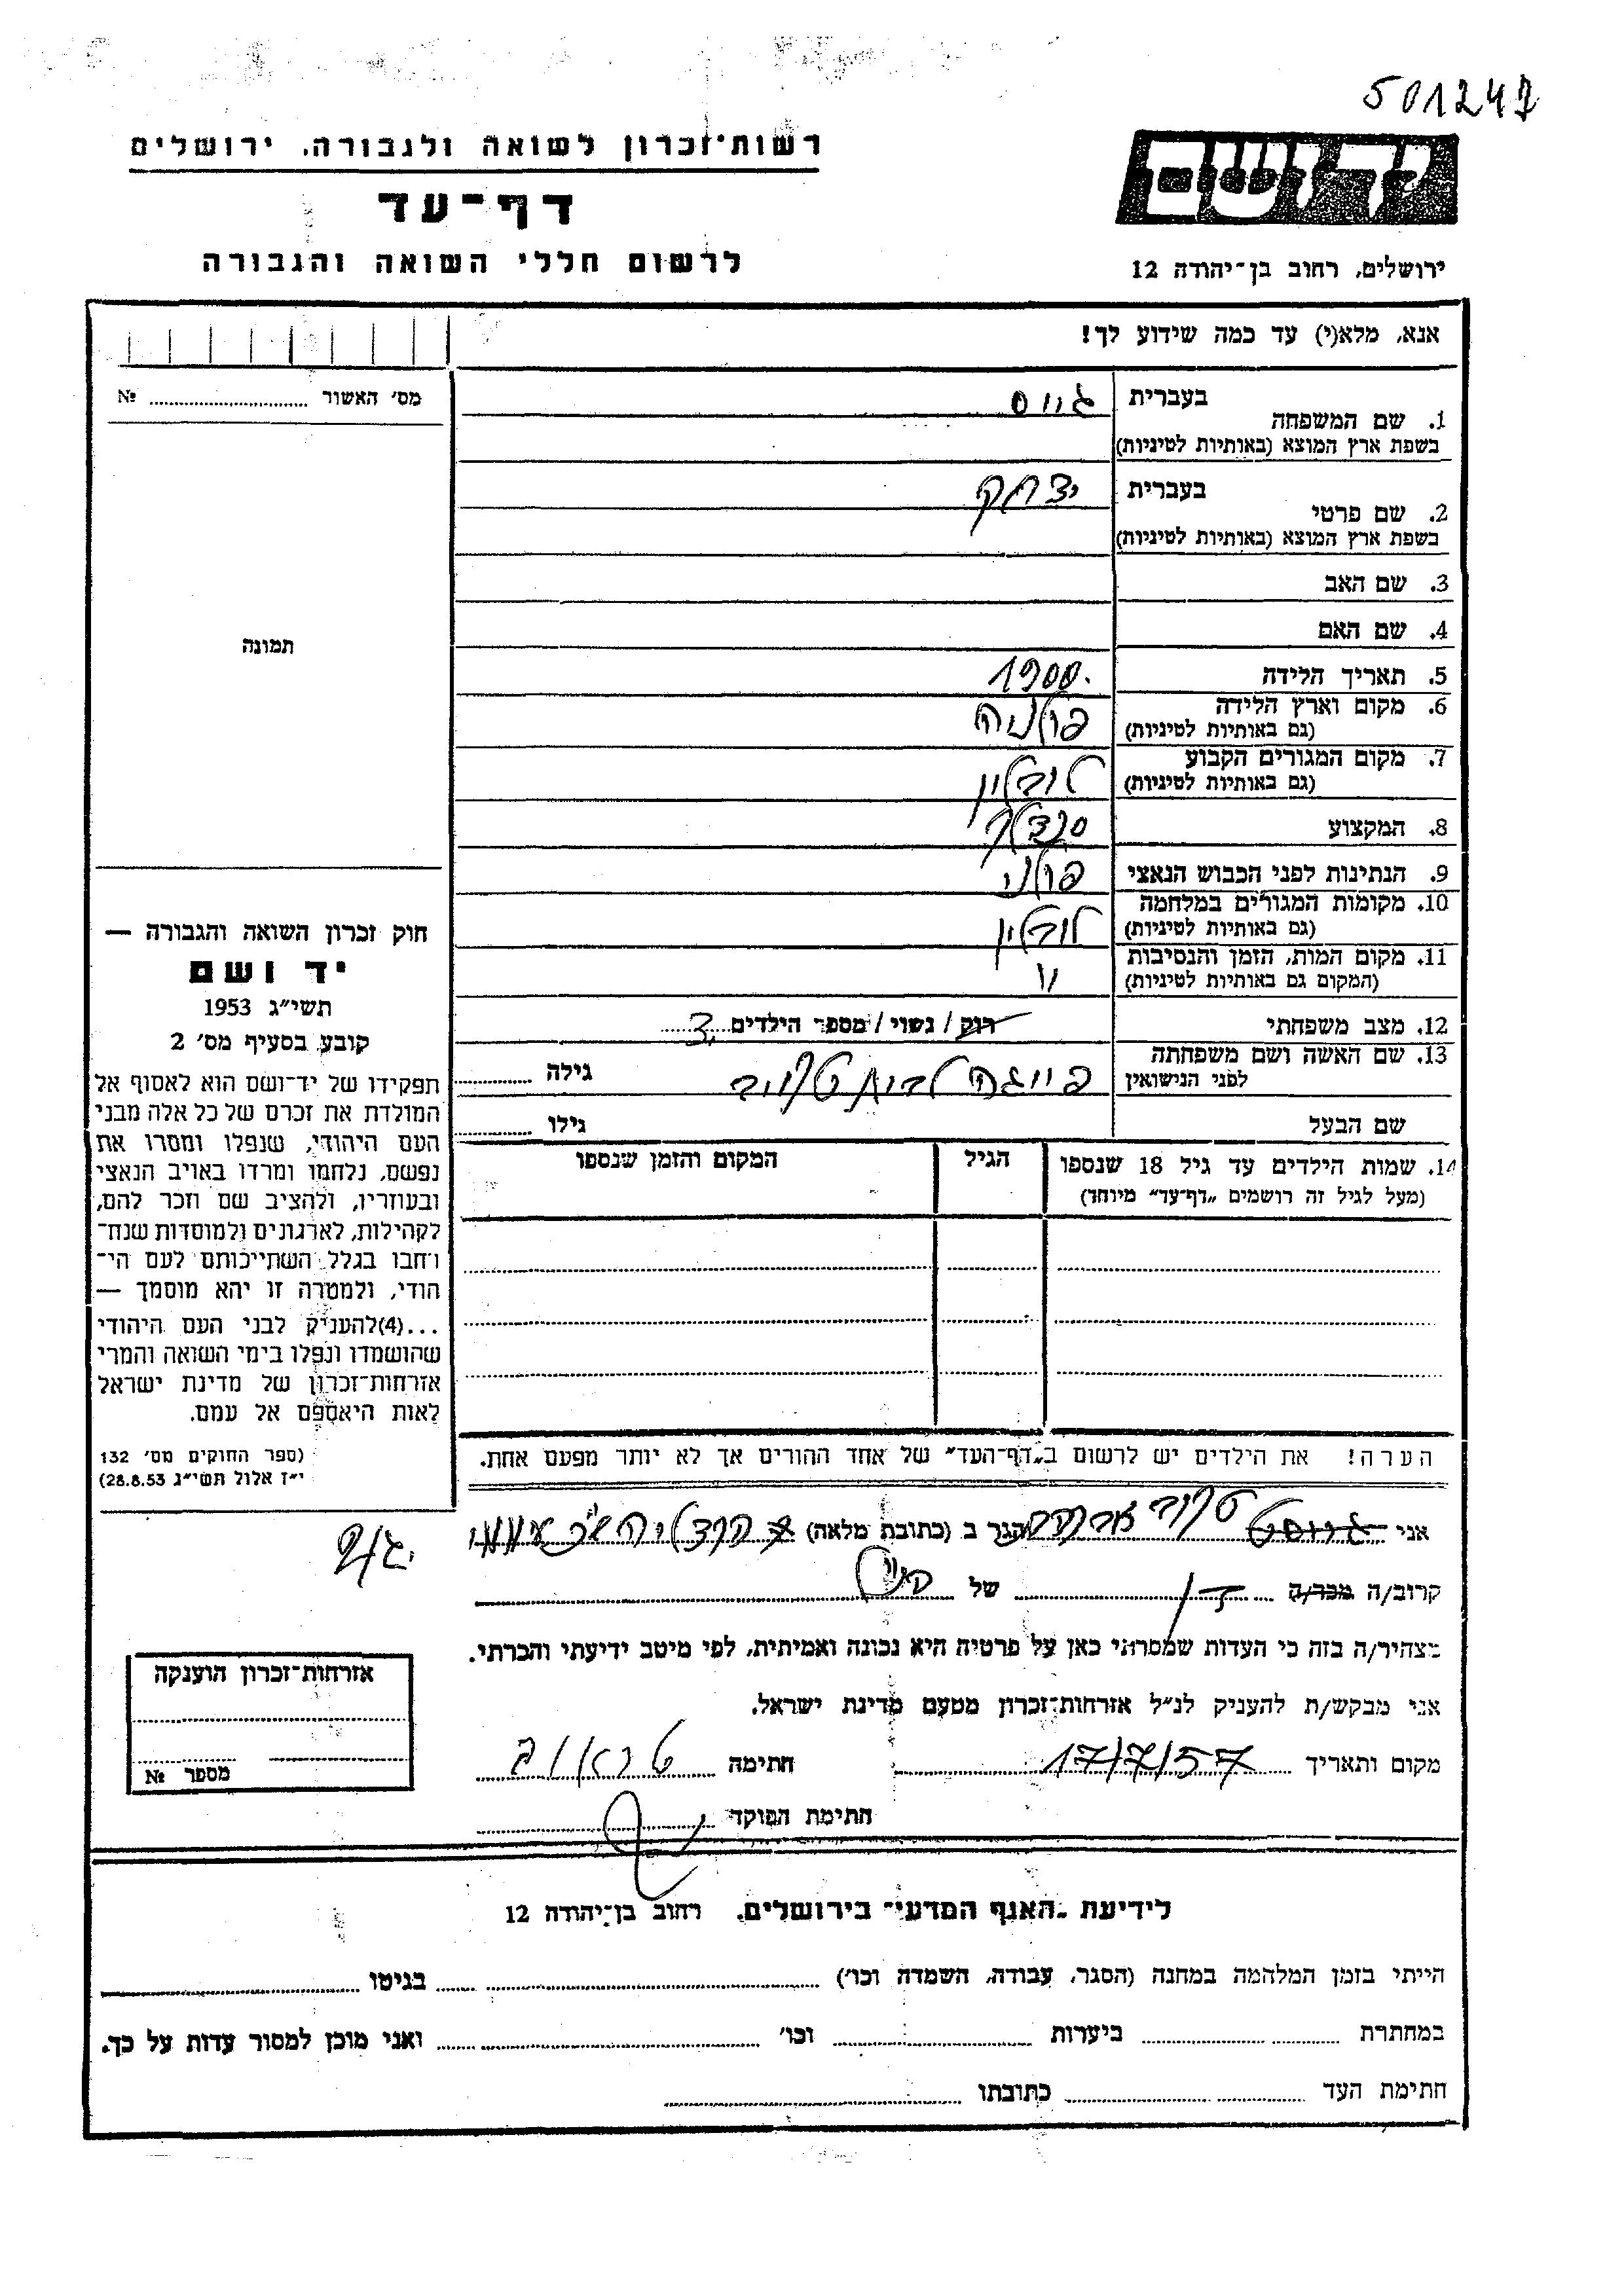 501247
יד ושם
רשות־זכרון לשואה ולגבורה, ירושלים
דף־עד
לרשום חללי השואה והגבורה
ירושלים, רחוב בן־יהודה 12
אנא, מלא(י) עד כמה שידוע לך!
מס׳ האשור № 
1. שם המשפחה בעברית גויס
בשפת ארץ המוצא (באותיות לטיניות)
2. שם פרטי בעברית יצחק
בשפת ארץ המוצא (באותיות לטיניות)
3. שם האב
4. שם האם
תמונה
5. תאריך הלידה 1900
6. מקום וארץ הלידה פולניה
(גם באותיות לטיניות)
7. מקום המגורים הקבוע לובלין
(גם באותיות לטיניות)
8. המקצוע סנדלר
9. הנתינות לפני הכבוש הנאצי פולני
10. מקומות המגורים במלחמה לובלין
(גם באותיות לטיניות)
11. מקום המות, הזמן והנסיבות "
(המקום גם באותיות לטיניות)
12. מצב משפחתי רוק / נשוי / מספר הילדים 3
13. שם האשה ושם משפחתה
לפני הנישואין פייגה גילה
שם הבעל גילו
14. שמות הילדים עד גיל 18 שנספו הגיל המקום והזמן שנספו
(מעל לגיל זה רושמים „דף־עד״ מיוחד)
חוק זכרון השואה והגבורה —
יד ושם
תשי״ג 1953
קובע בסעיף מס׳ 2
תפקידו של יד־ושם הוא לאסוף אל
המולדת את זכרם של כל אלה מבני
העם היהודי, שנפלו ומסרו את
נפשם, נלחמו ומרדו באויב הנאצי
ובעוזריו, ולהציב שם וזכר להם,
לקהילות, לארגונים ולמוסדות שנח־
רחבו בגלל השתייכותם לעם הי־
הודי, ולמטרה זו יהא מוסמך —
...(4)להעניק לבני העם היהודי
שהושמדו ונפלו בימי השואה והמרי
אזרחות־זכרון של מדינת ישראל
לאות היאספם אל עמם.
(ספר החוקים מס׳ 132
י״ז אלול תשי״ג 28.8.53)
הערה! את הילדים יש לרשום ב„דף־העד״ של אחד ההורים אך לא יותר מפעם אחת.
אני הגר ב (כתובת מלאה) הרצליה
קרוב/ה מכר/ה של גיס
מצהיר/ה בזה כי העדות שמסרתי כאן על פרטיה היא נכונה ואמיתית, לפי מיטב ידיעתי והכרתי.
אני מבקש/ת להעניק לנ״ל אזרחות־זכרון מטעם מדינת ישראל.
מקום ותאריך 17/7/57 חתימה
חתימת הפוקד
אזרחות־זכרון הוענקה
מספר №
לידיעת „האגף המדעי״ בירושלים, רחוב בן־יהודה 12
הייתי בזמן המלחמה במחנה (הסגר, עבודה, השמדה וכו׳) בגיטו
במחתרת ביערות וכו׳ ואני מוכן למסור עדות על כך.
חתימת העד כתובתו